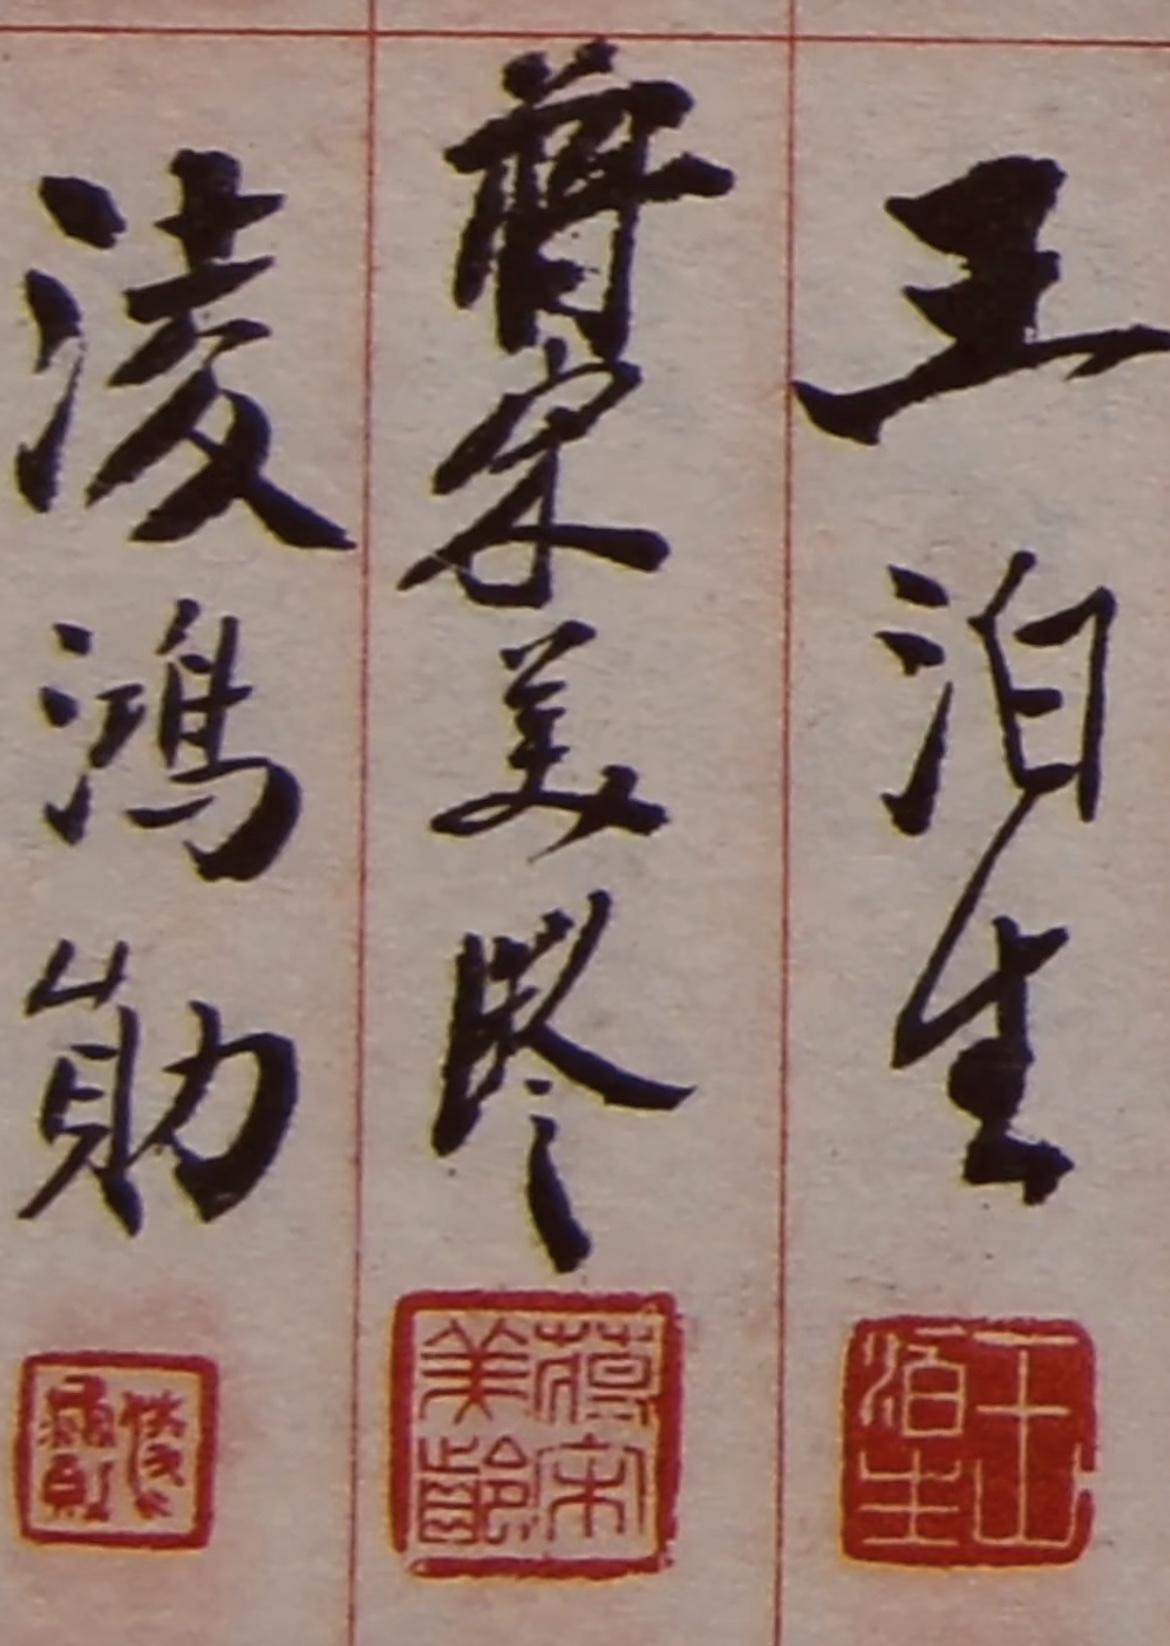 王泊生
王泊生
蔣宋美齡
蔣宋美齡
淩鴻勛